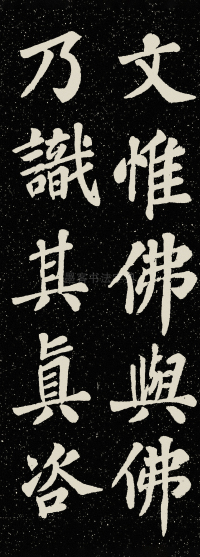 文惟佛與佛
乃識其眞咨